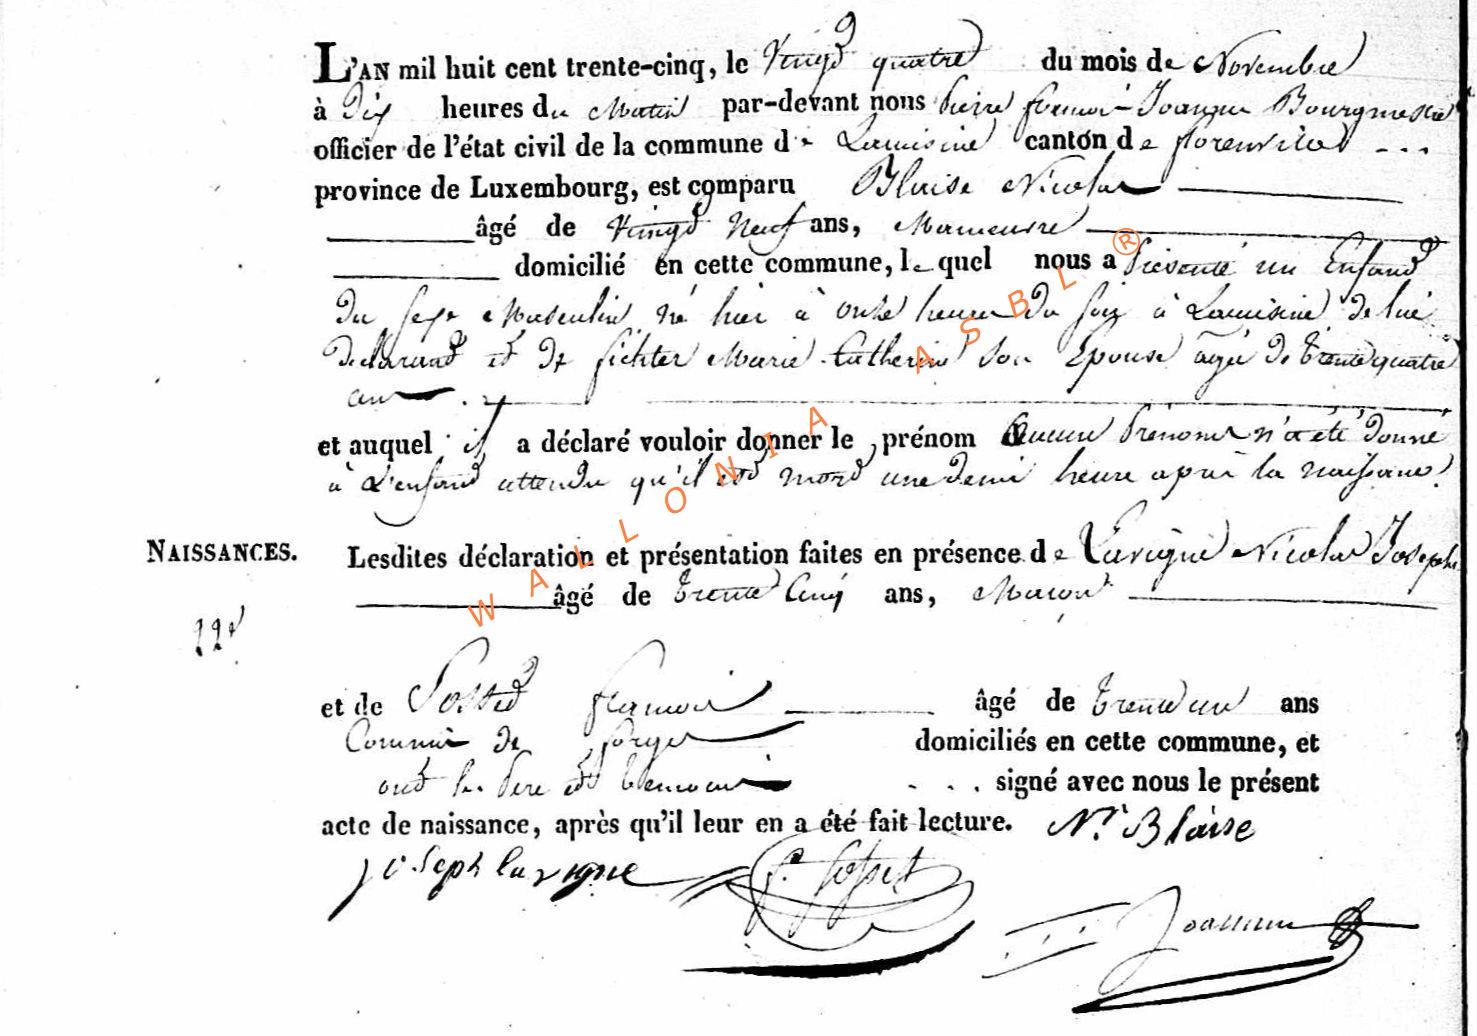 L'AN mil huit cent trente-cinq, le Vingt quatre du mois de Novembre
à Dix heures du Matin par-devant nous Pierre françois Joannem Bourgmestre
officier de l'état civil de la commune de Lacuisine canton de florenville
province de Luxembourg, est comparu Blaise Nicolas
âgé de Vingt Neuf ans, Manœuvre
domicilié en cette commune, lequel nous a Présenté un Enfant
Du sexe Masculin né hier à onze heures Du soir à Lacuisine de lui
declarant et de fichter Marie Catherine son Epouse agée de trente quatre
ans
et auquel il a déclaré vouloir donner le prénom Aucun Prénoms n'a été donné
à L'enfant attendu qu'il est mort une demi heure après la naissance.
NAISSANCES.
Lesdites déclaration et présentation faites en présence de Lavigne Nicolas Joseph
âgé de trente Cinq ans, Maçon
et de Gosset françois âgé de trente un ans
Commis de forges domiciliés en cette commune, et
ont le Pere et témoins signé avec nous le présent
acte de naissance, après qu'il leur en a été fait lecture. Ns Blaise
joseph lavigne f. Gosset
Joannem
WALLONIA ASBL ®